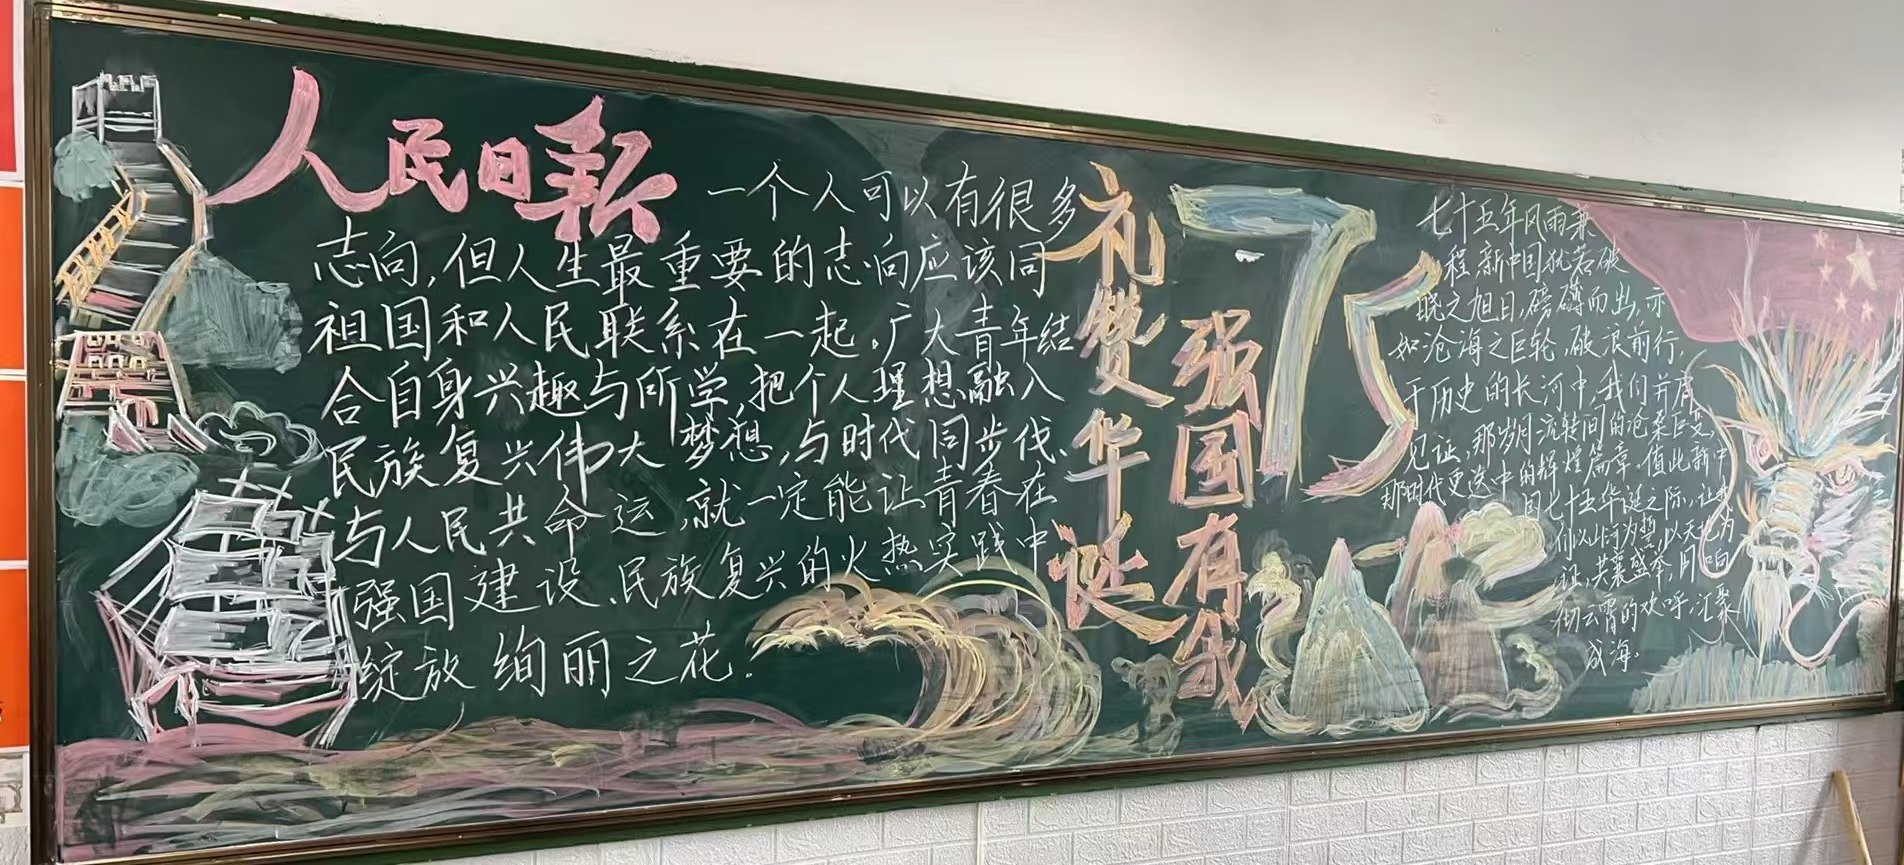 人民日報
一个人可以有很多
志向,但人生最重要的志向应该同
祖国和人民联系在一起。广大青年结
合自身兴趣与所学,把个人理想融入
民族复兴伟大梦想,与时代同步伐、
与人民共命运,就一定能让青春在
强国建设、民族复兴的火热实践中
绽放绚丽之花。
礼赞华诞
强国有我
75
七十五年风雨兼
程,新中国犹若破
晓之旭日,磅礴而出,亦
如沧海之巨轮,破浪前行,
于历史的长河中,我们并肩
见证,那岁月流转间的沧桑巨变,
那时代更迭中的辉煌篇章。值此新中
国七十五华诞之际,让我
们以山河为誓,以天地为
证,共襄盛举,用响
彻云霄的欢呼,汇聚
成海。